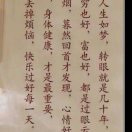 人生如梦，转眼就是几十年，
穷也好，富也好，都是过眼云
烟，蓦然回首才发现，心情好，
身体健康，才是最重要，
丢掉烦恼，快乐过好每一天